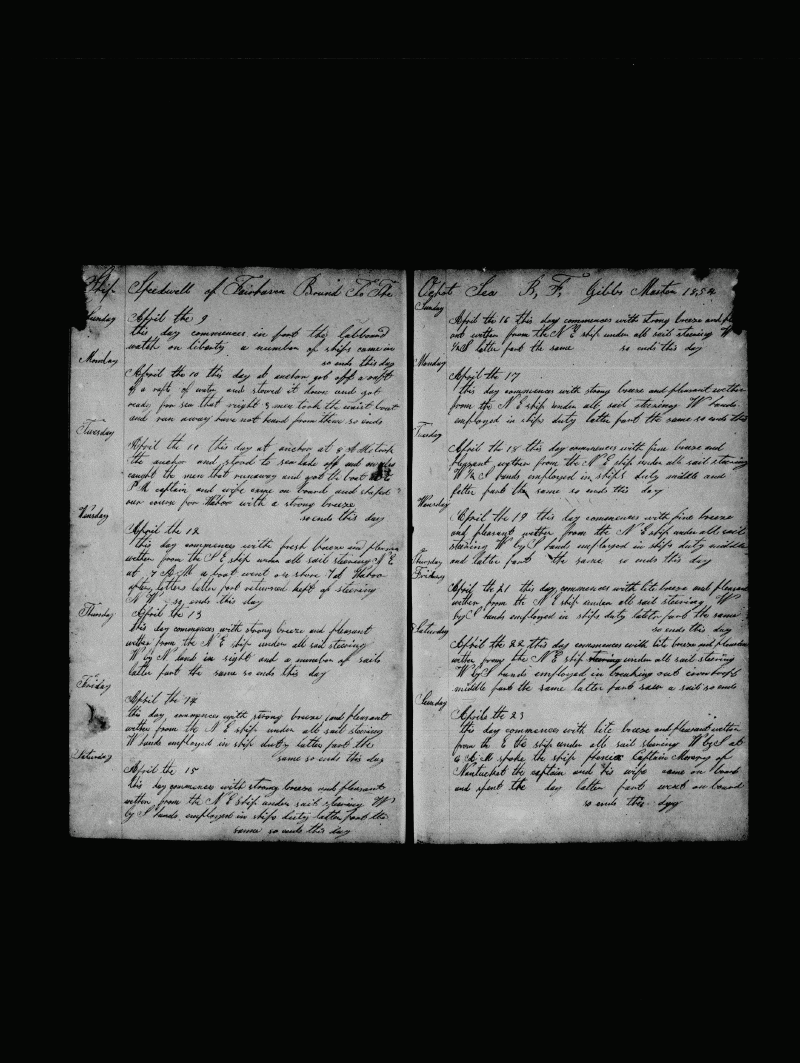 Ship Speedwell of Fairhaven Bound To The
Sunday
April the 9
this day commences in port the labboard
watch on liberty a number of ships came in
so ends this day
Monday
April the 10 this day at anchor got off a raft
of a raft of water and stowed it down and got
ready for sea that night 3 men took the waist boat
and run away have not heard from them so ends
Tuesday
April the 11 this day at anchor at 8 A M took
the anchor and stood to sea lade off and on
caught the men that runaway and got the boat
P M captain and wife came on board and shaped
our course for with a strong breeze
so ends this day
April the 12
this day commences with fresh breeze and pleasan
wether from the N E ship under all sail steering N E
at 7 A M a boat went on shore
letters latter part returned kept of steering
N W so ends this day
Thursday
April the 13
this day commences with strong breeze and pleasant
wether from the N E ship under all sail steering
W by N land in sight and a number of sails
latter part the same so ends this day
Friday
April the 14
the day commences with strong breeze and pleasant
wether from the N E ship under all sail steering
W hands employed in ship duty latter part the
same so ends this day
Saturday
April the 15
this day commences with strong breeze and pleasant
wether from the N E ship under sail steering W
by S hands employed in ships duty latter part the
same so ends this day
Sea B, F, Gibbs Master 1854
Sunday
April the 16 this day commences with strong breeze and
wether from the N E ship under all sail steering W
latter part the same so ends this day
Monday
April the 17
this day commences with strong breeze and pleasant wether
from the N E ship under all sail steering W hands
employed in ships duty latter part the same so ends this
Tuesday
April the 18 this day commences with fine breeze and
pleasent wether from the N E ship under all sail steering
hands employed in ships duty middle and
latter part the same so ends this day
April the 19 this day commences with fine breeze
and pleasant wether from the N E ship under all sail
steering W by S hands employed in ships duty middle
and latter part the same so ends this day
Thursday
Friday
April the 21 this day commences with lite breeze and pleasan
wether from the N E ship under all sail steering W
by S hands employed in ships duty latter part the same
so ends this day
Saturday
April the 22 this day commences with lite breeze and pleasan
wether from the N E ship steering under all sail steering
W by S hands employed in breaking out
middle part the same latter part saw a sail so ends
Sunday
April the 23
this day commences with lite breeze and pleasant wether
from the E the ship under all sail steering W by S at
6 A M spoke the ship Captain
Nantucket the captain and his wife came on board
and spent the day latter part went on board
so ends this dyy